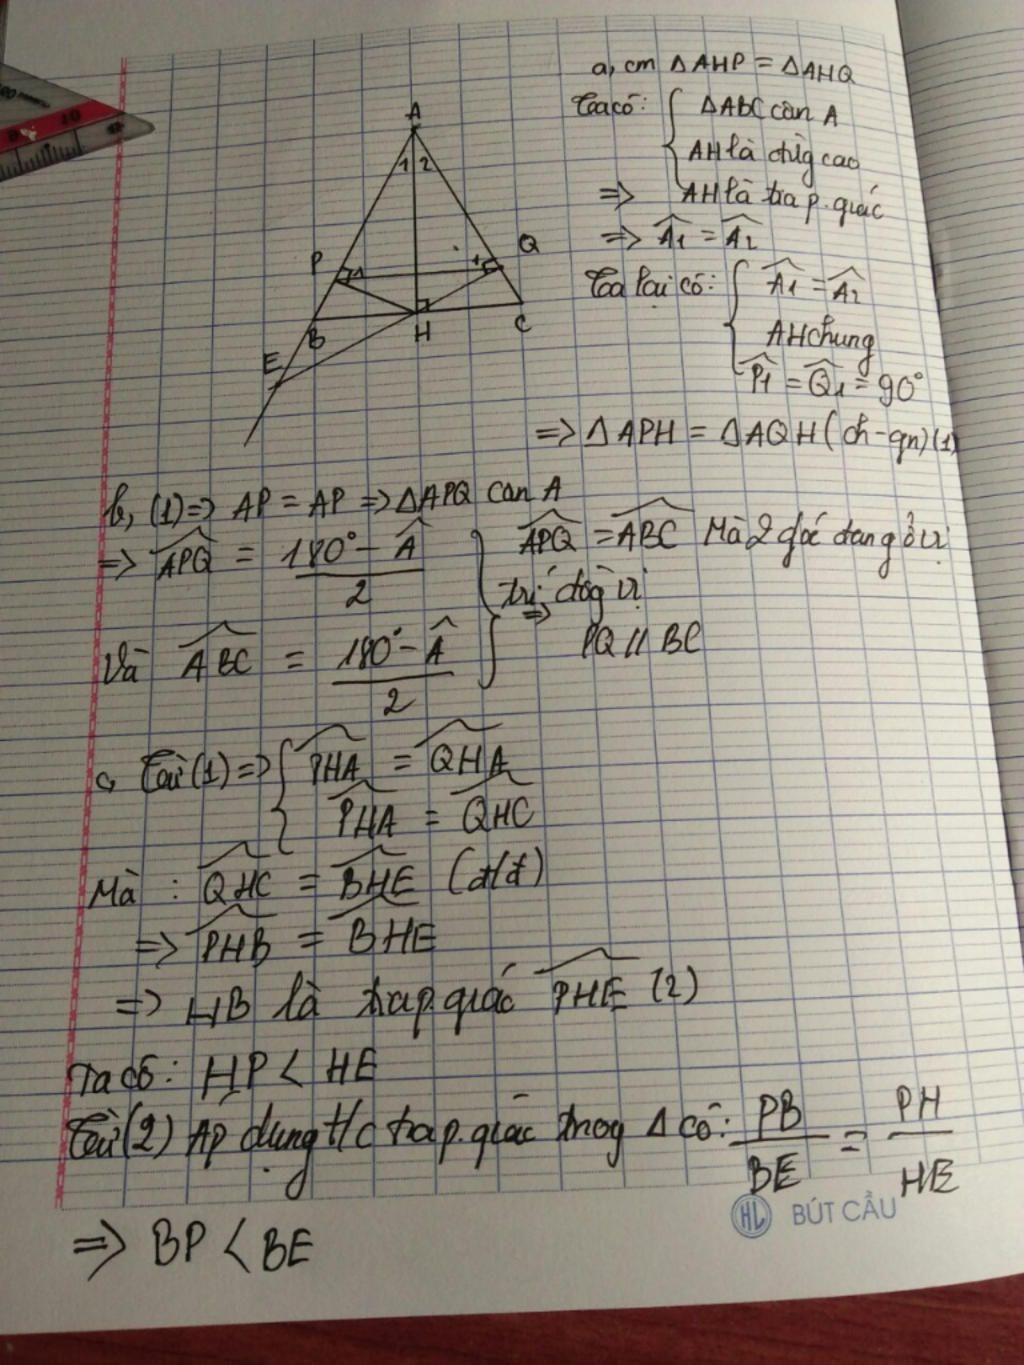 a, cm ΔAHP = ΔAHQ
Ta có: { ΔABC cân A
AH là đường cao
=> AH là tia p.giác
=> Â1 = Â2
Ta lại có: { Â1 = Â2
AH chung
P̂1 = Q̂1 = 90°
=> ΔAPH = ΔAQH (ch-gn) (1)
A
1 2
P
1
1
Q
B
H
C
E
b, (1) => AP = AP => ΔAPQ cân A
=> \widehat{APQ} = \frac{180° - Â}{2}
Và \widehat{ABC} = \frac{180° - Â}{2}
} \widehat{APQ} = \widehat{ABC} Mà 2 góc đang ở vị
trí đồg vị
=> PQ // BC
c, Từ (1) => { \widehat{PHA} = \widehat{QHA}
\widehat{PHA} = \widehat{QHC}
Mà : \widehat{QHC} = \widehat{BHE} (đ/đ)
=> \widehat{PHB} = \widehat{BHE}
=> HB là tia p.giác \widehat{PHE} (2)
Ta có: HP < HE
Từ (2) Áp dụng t/c tia p.giác trog Δ có: \frac{PB}{BE} = \frac{PH}{HE}
=> BP < BE
HL BÚT CẦU